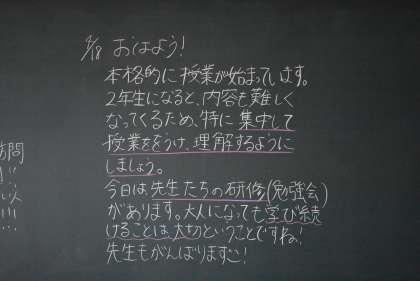 おはよう!
本格的に授業が始まっています。
2年生になると、内容も難しく
なってくるため、特に集中して
授業ををうけ、理解するように
しましょう。
今日は先生たちの研修(勉強会)
があります。大人になっても学び続
けることは大切ということですね!
先生もがんばりますっ!
問
!!
以
!!!